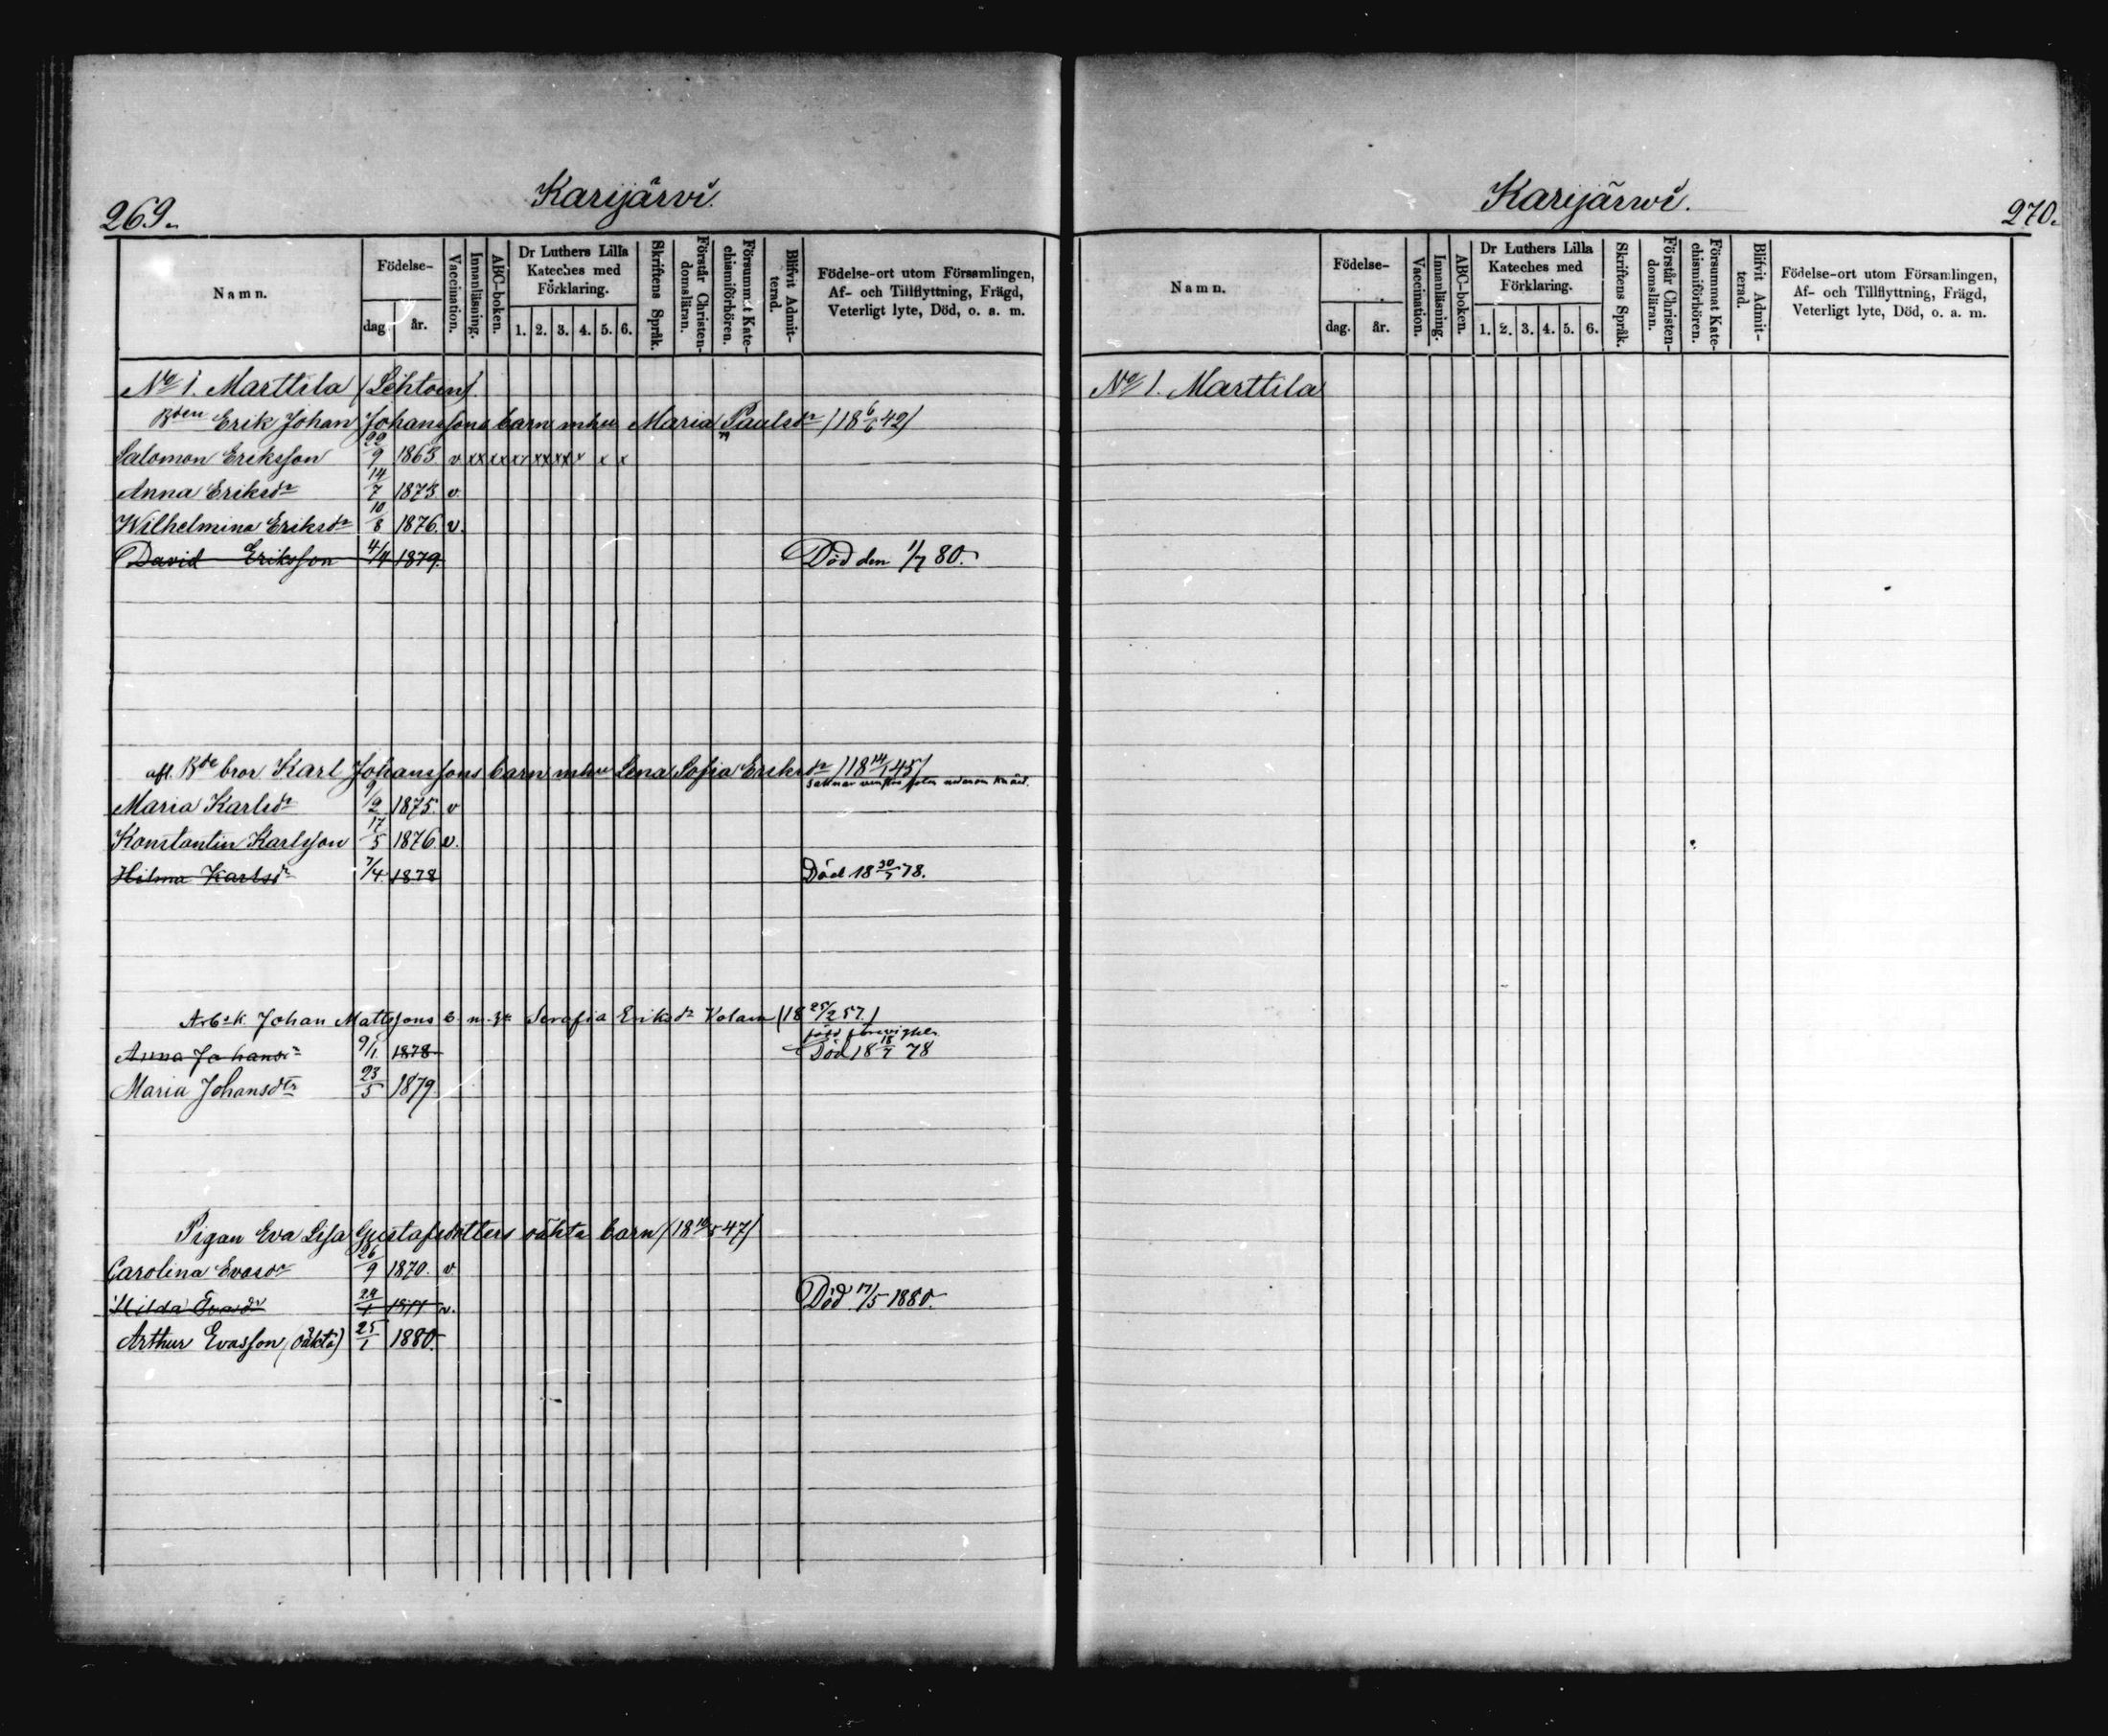 269.
Karijärvi.
Namn.
Födelse-
dag
år.
Vaccination.
Innanläsning.
ABC-boken.
Dr Luthers Lilla
Kateches med
Förklaring.
1. 2. 3. 4. 5. 6.
Skriftens Språk.
Förstår Christen-
domsläran.
Försummat Kate-
chismiförhören.
Blifvit Admit-
terad.
Födelse-ort utom Församlingen,
Af- och Tillflyttning, Frägd,
Veterligt lyte, Död, o. a. m.
No 1. Marttila (Lehtoin).
Bden Erik Johan Johanssons barn m hu Maria Paulsdr (18 6/6 42)
Salomon Eriksson 22/9 1863. v xx xx xx xx xx x x x
Anna Eriksdr 14/7 1873. v.
Wilhelmina Eriksdr 10/8 1876. v.
David Eriksson 4/4 1879. Död den 1/7 80.
afl. Bde bror Karl Johanssons barn m hu Lena Sofia Eriksdr (18 14/1 45)
Maria Karlsdr 9/2 1875. v
Konstantin Karlsson 17/5 1876. v.
Hilma Karlsdr 7/4. 1878 Död 18 30/7 78.
Arb.k. Johan Mattssons b. m. Serafia Eriksdr (18 25/2 57.)
Anna Johansdr 9/1. 1878 Död 18 18/7 78
Maria Johansdtr 23/5 1879
Pigan Eva Lisa Gustafsdotters oäkta barn (18 10/5 47)
Carolina Evasdr 26/9 1870. v
Hilda Evasdr 24/1 1877 v. Död 17/5 1880.
Arthur Evasson (oäkta) 25/1 1880.
Karijärwi.
270.
Namn.
Födelse-
dag.
år.
Vaccination.
Innanläsning.
ABC-boken.
Dr Luthers Lilla
Kateches med
Förklaring.
1. 2. 3. 4. 5. 6.
Skriftens Språk.
Förstår Christen-
domsläran.
Försummat Kate-
chismiförhören.
Blifvit Admit-
terad.
Födelse-ort utom Församlingen,
Af- och Tillflyttning, Frägd,
Veterligt lyte, Död, o. a. m.
No 1. Marttila